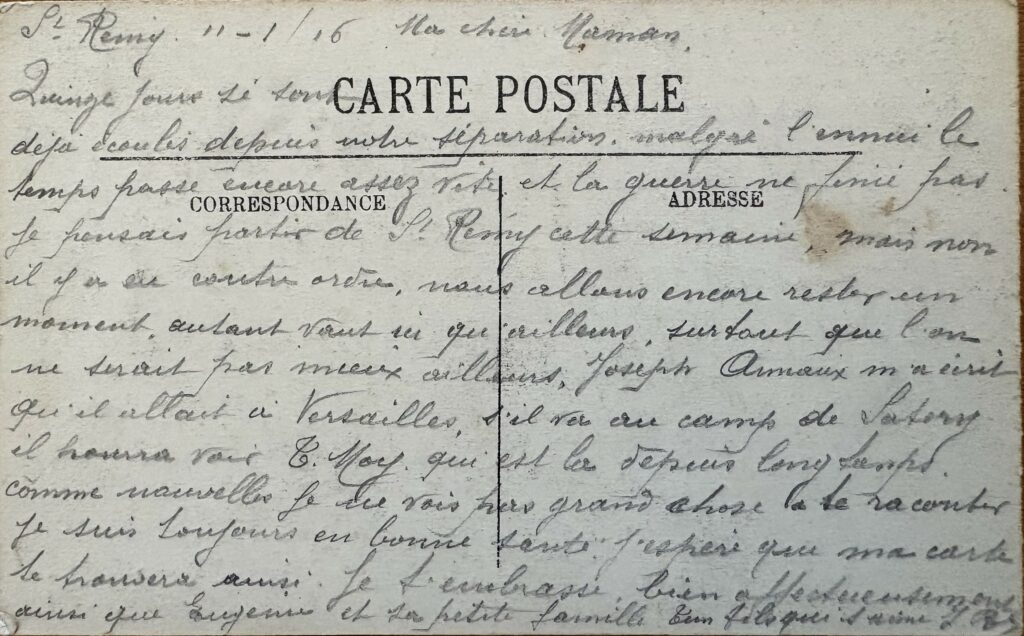 St Remy. 11-1/16 Ma chère Maman,
Quinze jours sé sont
CARTE POSTALE
déjà écoulés depuis notre séparation. malgré l'ennui le
temps passe encore assez vite et la guerre ne finie pas.
CORRESPONDANCE
ADRESSE
Je pensais partir de St Remy cette semaine, mais non
il y a eu contre ordre, nous allons encore rester un
moment, autant vaut ici qu'ailleurs, surtout que l'on
ne serait pas mieux ailleurs, Joseph m'a écrit
qu'il allait à Versailles, s'il va au camp de Satory
il pourra voir E. Moy. qui est la depuis longtemps.
comme nouvelles je ne vois pas grand chose a te raconter
je suis toujours en bonne santé. J'espère que ma carte
te trouvera ainsi. Je t'embrasse, bien affectueusement
ainsi que Eugenie et sa petite famille Ton fils qui t'aime